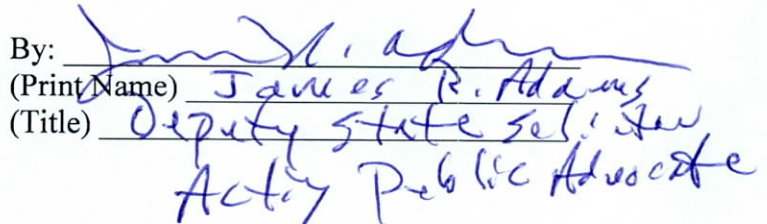 By:
(Print Name) James R. Adams
(Title) Deputy State Solicitor
Acting Public Advocate